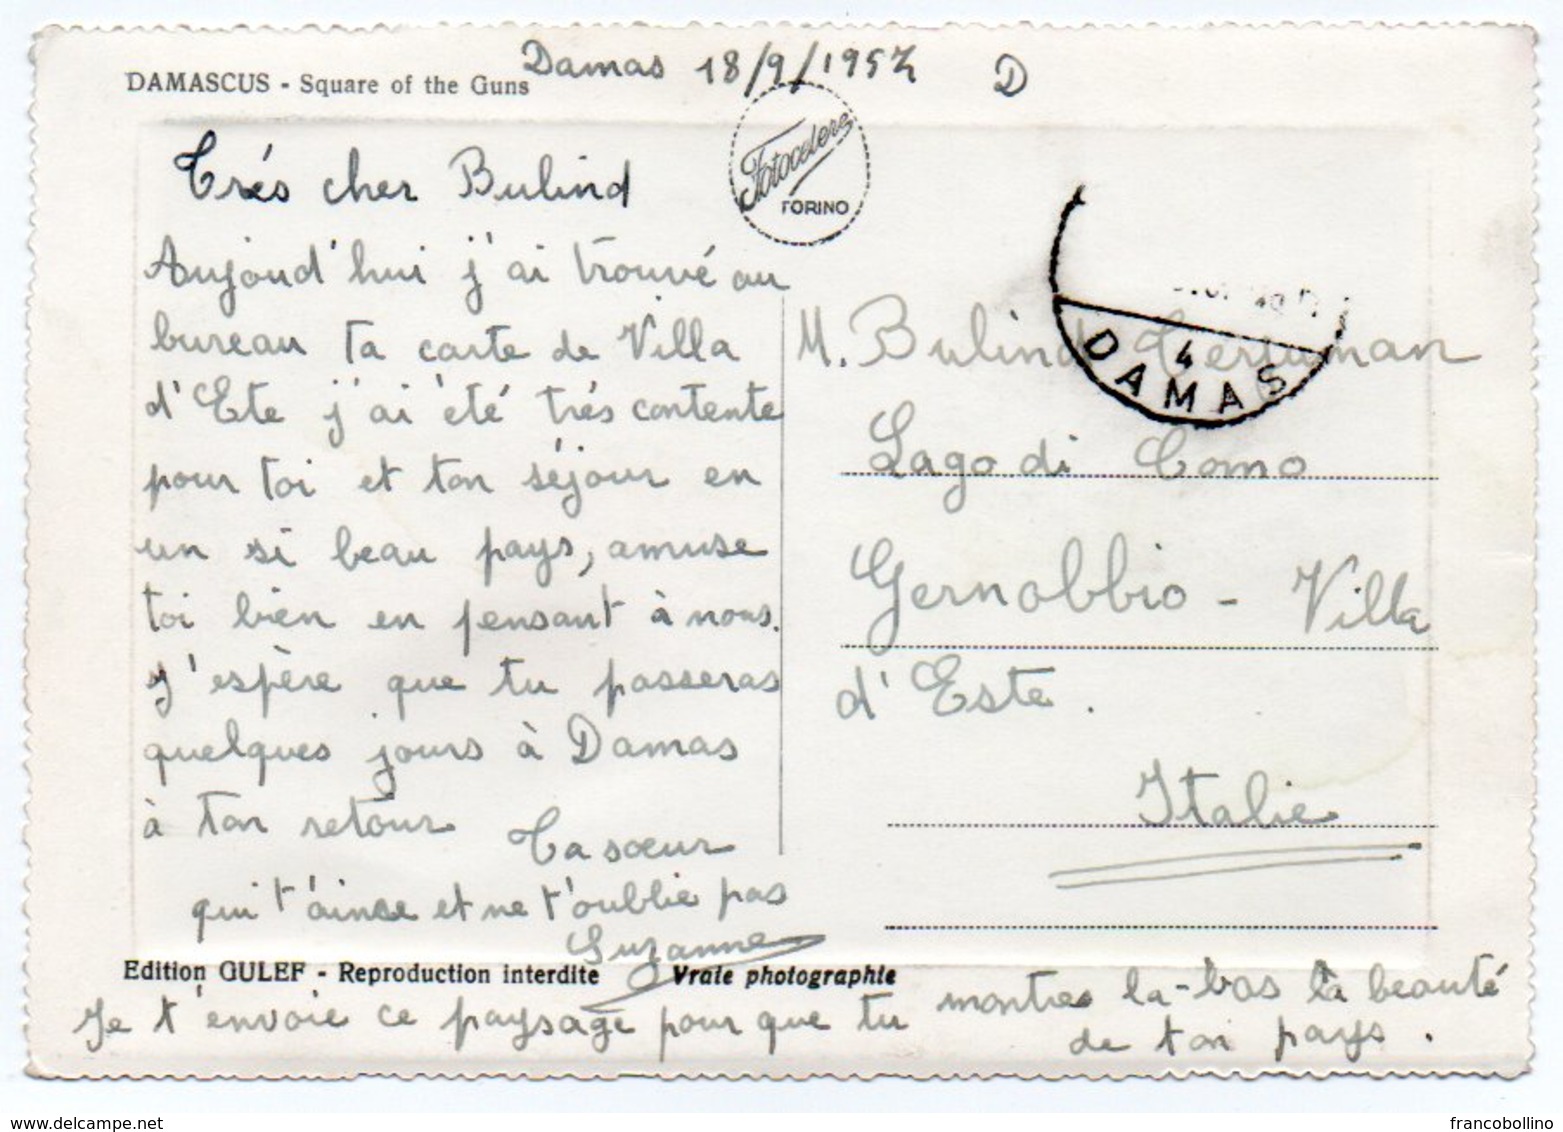 Damas 18/9/1957 D
DAMASCUS - Square of the Guns
Fotocelere
TORINO
Trés cher Bulind
Aujoud'hui j'ai trouvé au
bureau ta carte de Villa
d'Ete j'ai été trés contente
pour toi et ton séjour en
un si beau pays, amuse
toi bien en pensant à nous.
J'espère que tu passeras
quelques jours à Damas
à ton retour
Ta sœur
qui t'aime et ne t'oublie pas
Suzanne
M. Bulind
Lago di Como
Gernobbio - Villa
d'Este.
Italie
4
DAMAS
Edition GULEF - Reproduction interdite Vraie photographie
Je t'envoie ce paysage pour que tu montres la-bas la beauté
de ton pays.
www.delcampe.net
francobollino